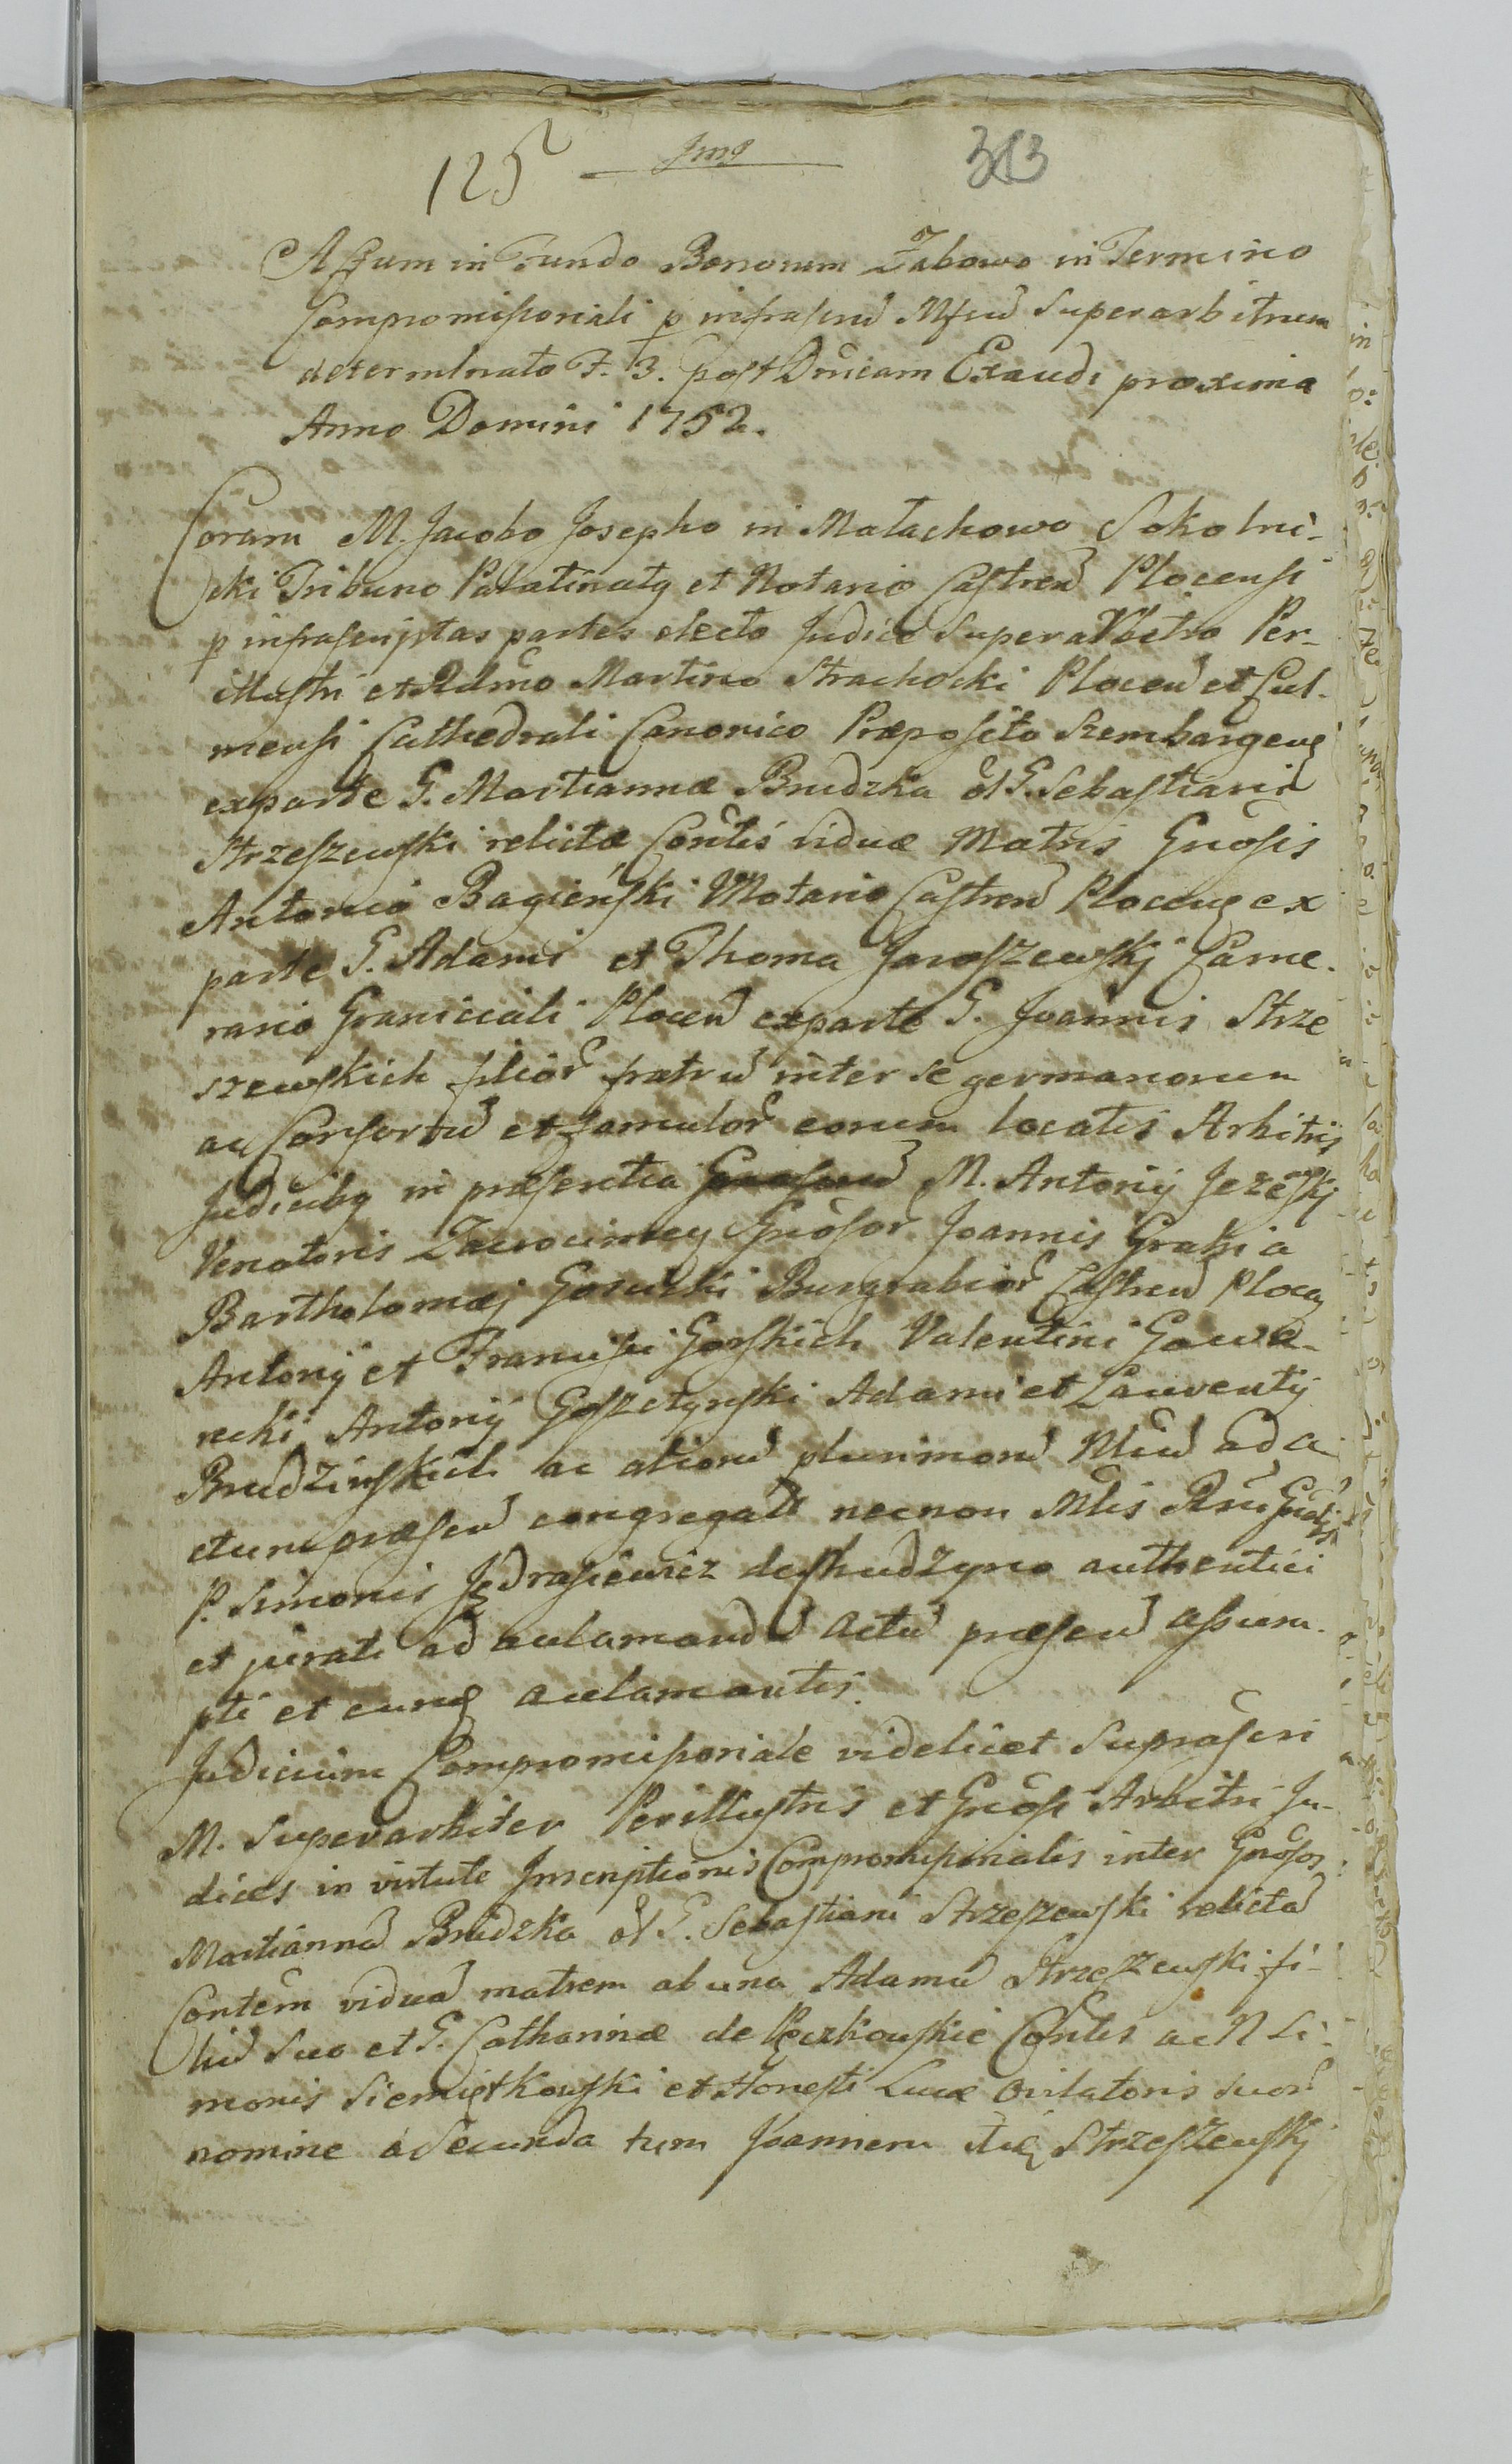 125 Jmg 313
Actum in Fundo Bonorum Żabowo in Termino
Compromissoriali p infrascrũ Mfcũ Superarbitrum
determinato F. 3. post Dnicam Exaudi proxima
Anno Domini 1752.
Coram M. Jacobo Josepho in Małachowo Sokolni-
cki Tribuno Palatinatq et Notario Castreñ Plocensi
p infrascriptas partes electo Judice Superarbitro Per-
illustri et Rdmo Martino Strachocki Ploceñ et Cul-
mensi Cathedrali Canonico Præposito Szembargeñ
ex parte G. Martiannæ Brudzka ol G. Sebastiani
Strzeszewski relictæ Contis viduæ Matris Gnosis
Antonio Bagieński Notario Castreñ Ploceñ ex
parte G. Adami et Thoma Jaroszewskj Came-
rario Graniciali Ploceñ ex parte G. Joannis Strze
szewskich filior̃ fratrũ inter se germanorum
ac Consortũ et famulor̃ eorum locatis Arbitris
Judicibq in præsentia M. Antonij Jezeskj
Venatoris Zacrocimeñ Gnosor̃ Joannis Grabia
Bartholomæj Gosticki Burgrabior̃ Castreñ Ploceñ
Antonij et Francisci Gorskich Valentini Gowa-
recki Antonij Goszczynski Adami et Laurentij
Brudzinskich ac aliorũ plurimorũ Nliũ ad a-
ctum præseñ congregatt necnon Mlis Rni Gnalis
P. Simonis Jędrasiewicz de Studzyno authentici
et jurati ad acclamandũ Actũ præseñ assum-
pti et eunq acclamantis.
Judicium Compromissoriale videlicet Suprascri
M. Superarbiter Perillustris et Gnosi Arbitri Ju-
dices in virtute Inscriptionis Compromissorialis inter Gnosos
Martiannã Brudzka ol G. Sebastiani Strzeszewski relictã
Contem viduã matrem ab una Adamũ Strzeszewski fi-
liũ Suo et G. Catharinæ de Pęczkowskie Contis ac N Si-
monis Siemiętkowski et Honesti Lucæ Ovilatoris Suor̃
nomine a Secunda tum Joannem itiq Strzeszewskj